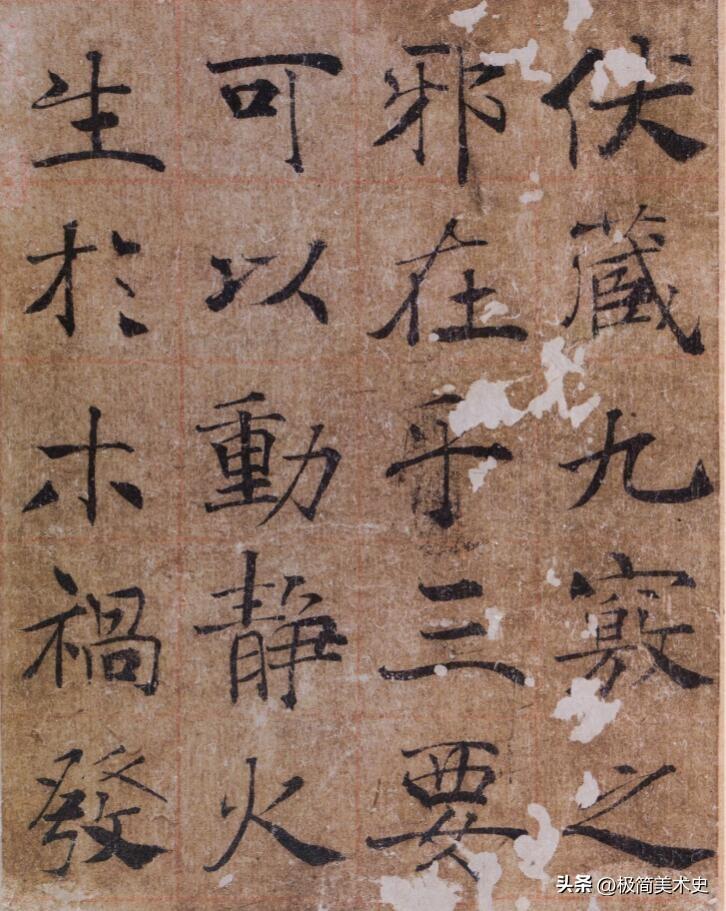 伏藏九竅之
邪在乎三要
可以動靜火
生於木禍發
头条 @极简美术史